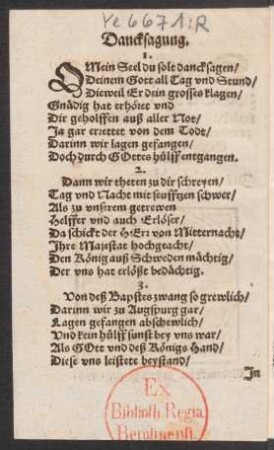 Ye 6671:R
Dancksagung.
1.
O Mein Seel du solt dancksagen/
Deinem Gott all Tag vnd Stund/
Dieweil Er dein grosses klagen/
Gnädig hat erhöret vnd
Dir geholffen auß aller Not/
Ja gar errettet von dem Todt/
Darinn wir lagen gefangen/
Doch durch GOttes hülff entgangen.
2.
Dann wir theten zu dir schreyen/
Tag vnd Nacht mit seufftzen schwer/
Als zu vnserem getrewen
Helffer vnd auch Erlöser/
Da schickt der HErr von Mitternacht/
Ihre Majestat hochgeacht/
Den König auß Schweden mächtig/
Der vns hat erlößt bedächtig.
3.
Von deß Bapstes zwang so grewlich/
Darinn wir zu Augspurg gar/
Lagen gefangen abschewlich/
Vnd kein hülff sunst bey vns war/
Als GOtt vnd deß Königs Hand/
Diese vns leistete beystand/
In
Ex
Biblioth. Regia
Berolinensi.